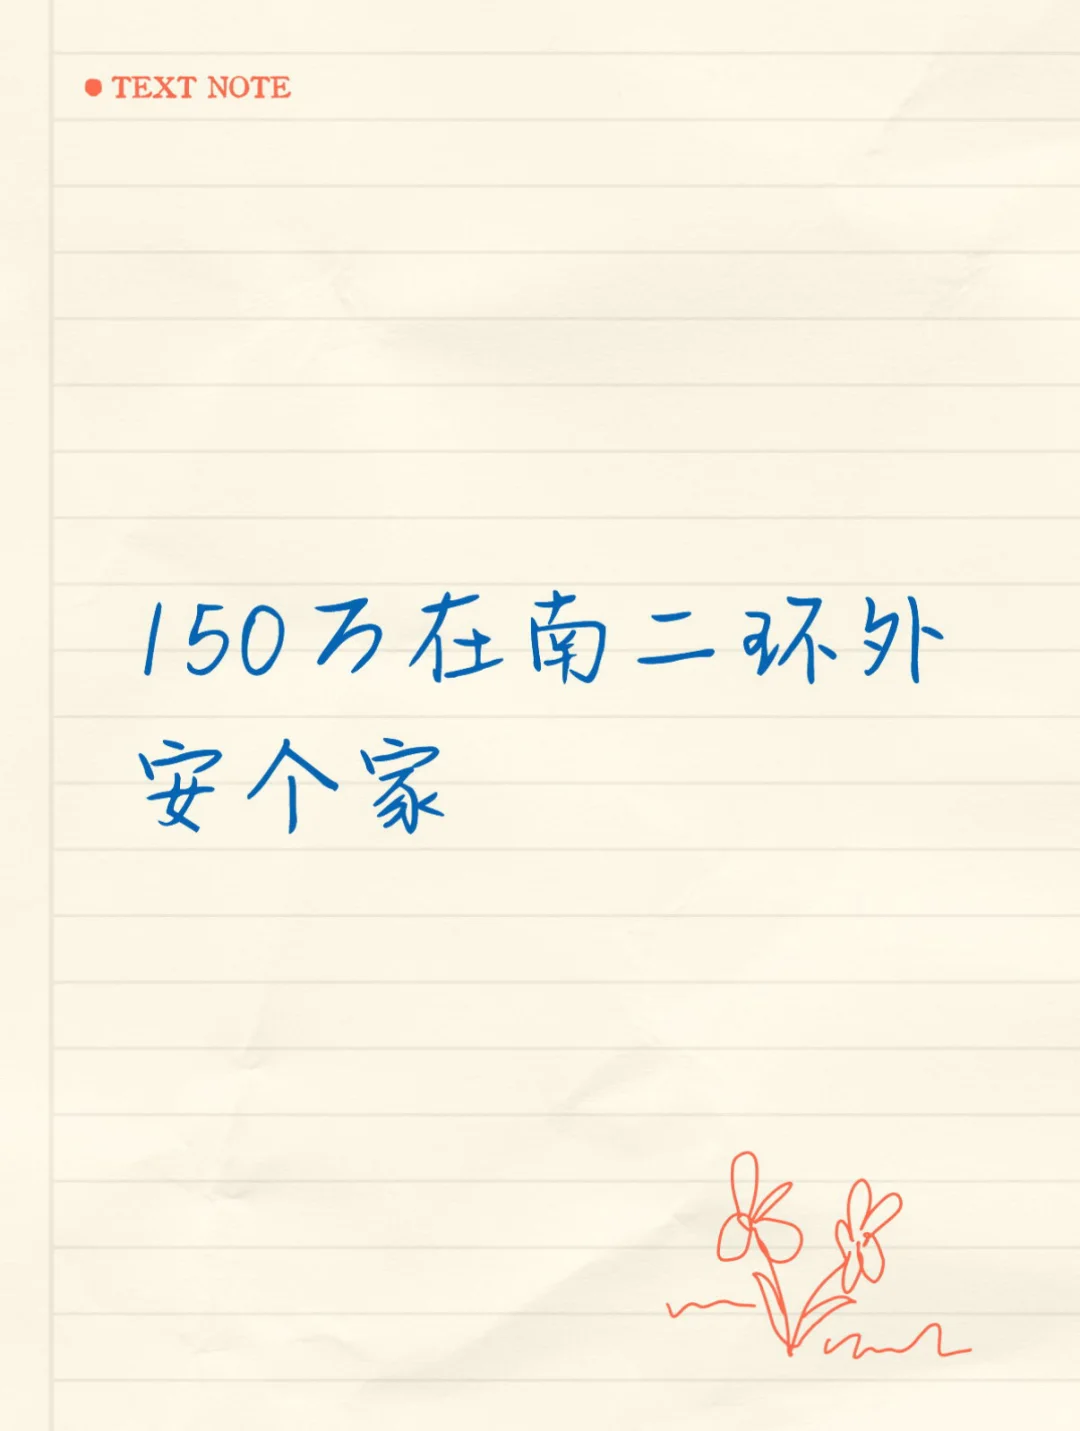 TEXT NOTE
150万在南二环外
安个家